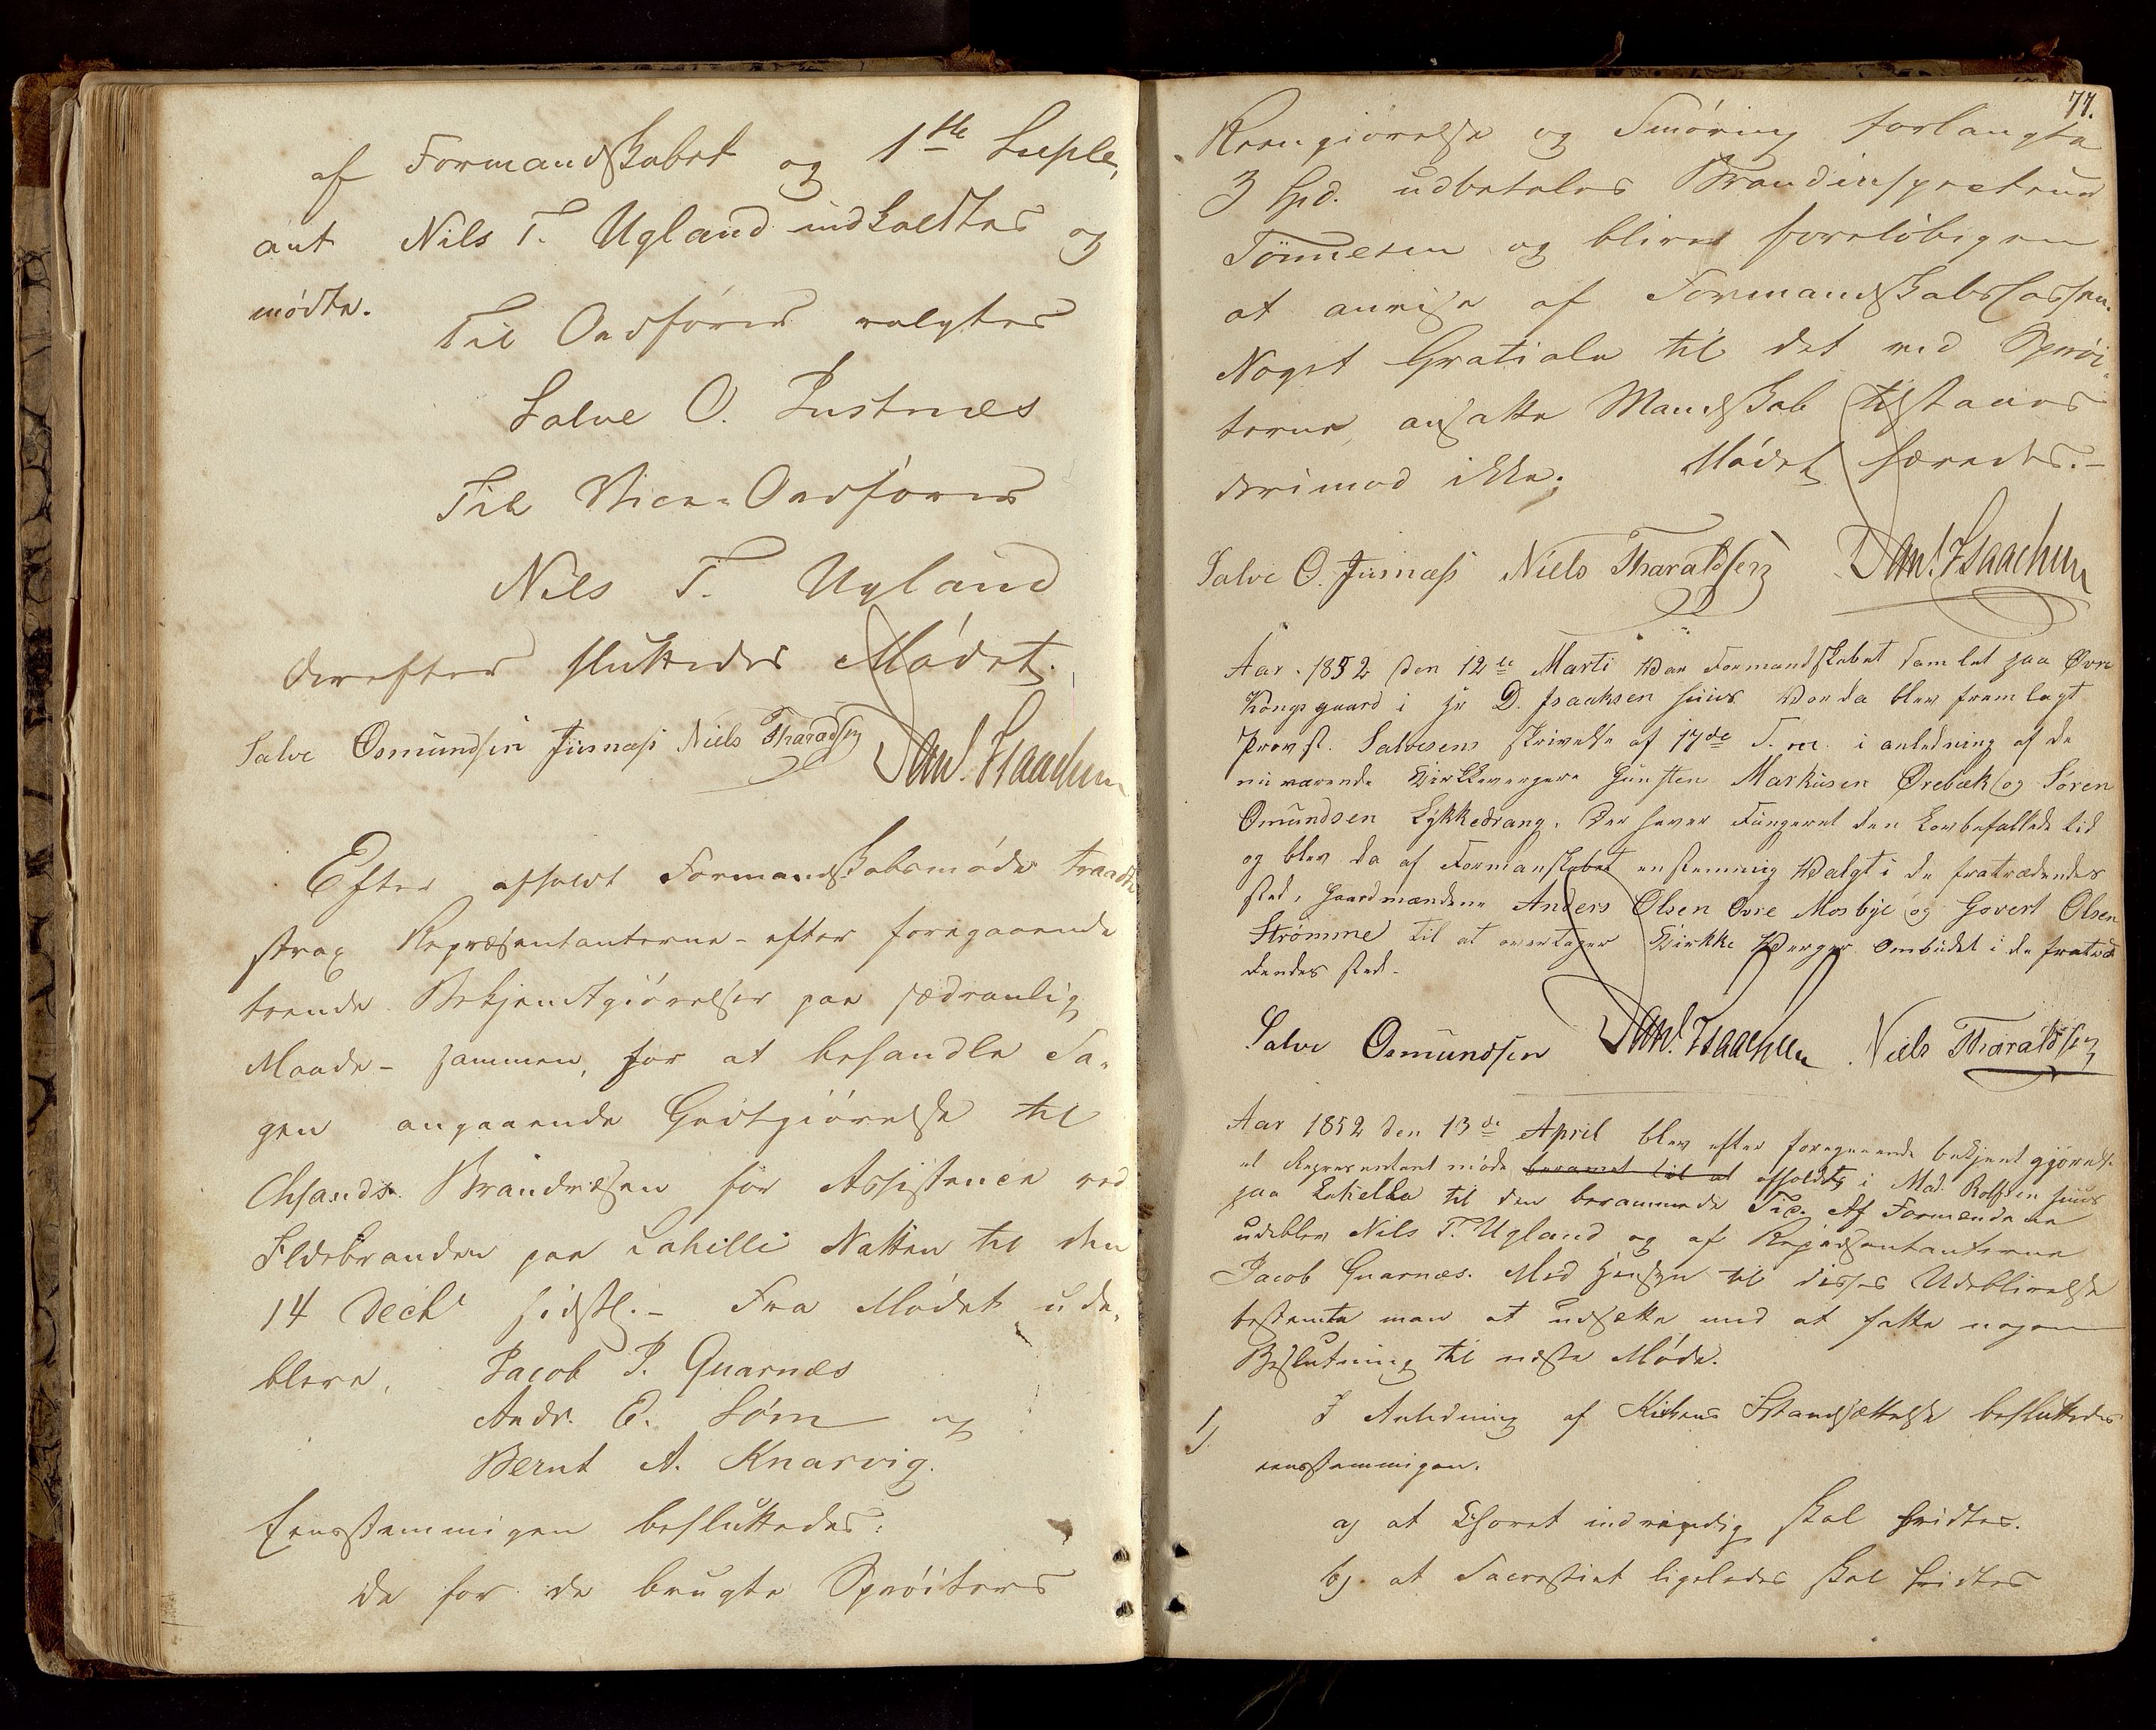 af Formandskabet og 1ste Suple,
ant Nils T. Ugland indkaldtes og
mødte.
Til Ordfører valgtes
Salve O. Justnæs
Til Vice-Ordfører
Nils T. Ugland
derefter sluttedes Mødet.
Salve Osmundsen Jusnæs Niels Tharaldsen Danl. Isaachsen
Efter afholdt Formandskabsmøde traadte
strax Repræsentanterne - efter foregaaende
trende Bekjendtgiørelser paa sædvanlig
Maade - sammen, for at behandle Sa,
gen angaaende Godtgiørelse til
Chsands Brandvæsen for Assistence ved
Ildebranden paa Lahille Natten til den
14 Decbr sidstl. - Fra Mødet ude,
bleve. Jacob P. Quarnæs
Andr. E. Søm og
Bernt A. Knarvig.
Eensstemmigen besluttedes:
da for de brugte Sprøiters
77.
Reengiørelse og Smøring forlangte
3 Spd. udbetales Brandinspecteur
Tønnesen og bliver foreløbigen
at anvise af Formandskabscassen.
Noget Gratiale til det ved Sprøi,
terne ansatte Mandskab tilstaaes
derimod ikke. Mødet hævedes. -
Salve O. Jusnæs Niels Tharaldsen Danl. Isaachsen
Aar 1852 den 12te Marti var Formandskabet samlet paa Øvre
Kongsgaard i Hr D. Isaaksen huus hvor da blev fremlagt
Provst. Salvesens skrivelse af 17de F. m. i anledning af de
nuværende Kirkeværgere Gunsten Markusen Ørebæk og Søren
Omundsen Lykkedrang. Der haver Fungeret den Lovbefallede tid
og blev da af Formanskabet enstemmig Valgt i de fratrædendes
sted, Gaardmændene Anders Olsen Øvre Mosbye og Govert Olsen
Strømme til at overtager Kirke Værger Ombudet i de fratræ
dendes sted.
Salve Osmundsen Danl. Isaachsen Niels Tharaldsen
Aar 1852 den 13de April blev efter foregaaende bekjentgjørelse
et Represantant møde beramet til at afholdtes i Mad. Rolfsen huus
paa Lahella til den berammede Tid. Af Formændene
udeblev Nils T. Ugland og af Repræsentanterne
Jacob Quarnæs. Med Hensyn til disses Udeblivelse
bestemte man at udsætte med at fatte nogen
Beslutning til næste Møde.
1) I Anledning af Kirkens Istandsættelse besluttedes
eensstemmigen.
a) at Choret indvendig skal hvidtes.
b) at Sacrastiet ligeledes skal hvidtes